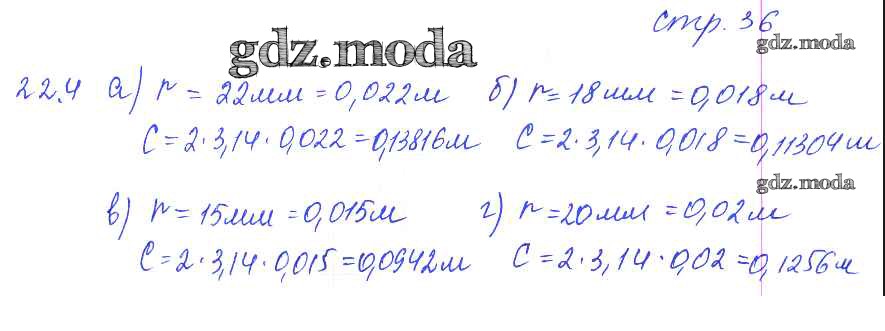 стр. 36
gdz.moda
gdz.moda
22.4 а) r = 22мм = 0,022м б) r = 18мм = 0,018м
C = 2·3,14·0,022 = 0,13816м C = 2·3,14·0,018 = 0,11304м
gdz.moda
в) r = 15мм = 0,015м г) r = 20мм = 0,02м
C = 2·3,14·0,015 = 0,0942м C = 2·3,14·0,02 = 0,1256м